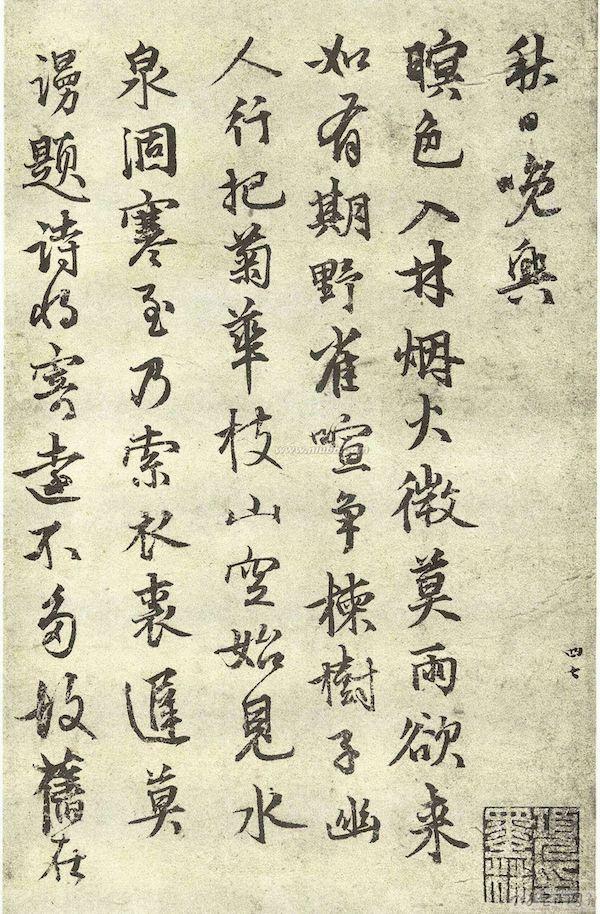 秋日晚興
暝色入林烟火微莫雨欲来
如有期野雀喧争楝樹子幽
人行把菊華枝山空始見水
泉涸寒至乃索衣裘遲莫
謾題詩将寄遠不多故舊在
四七